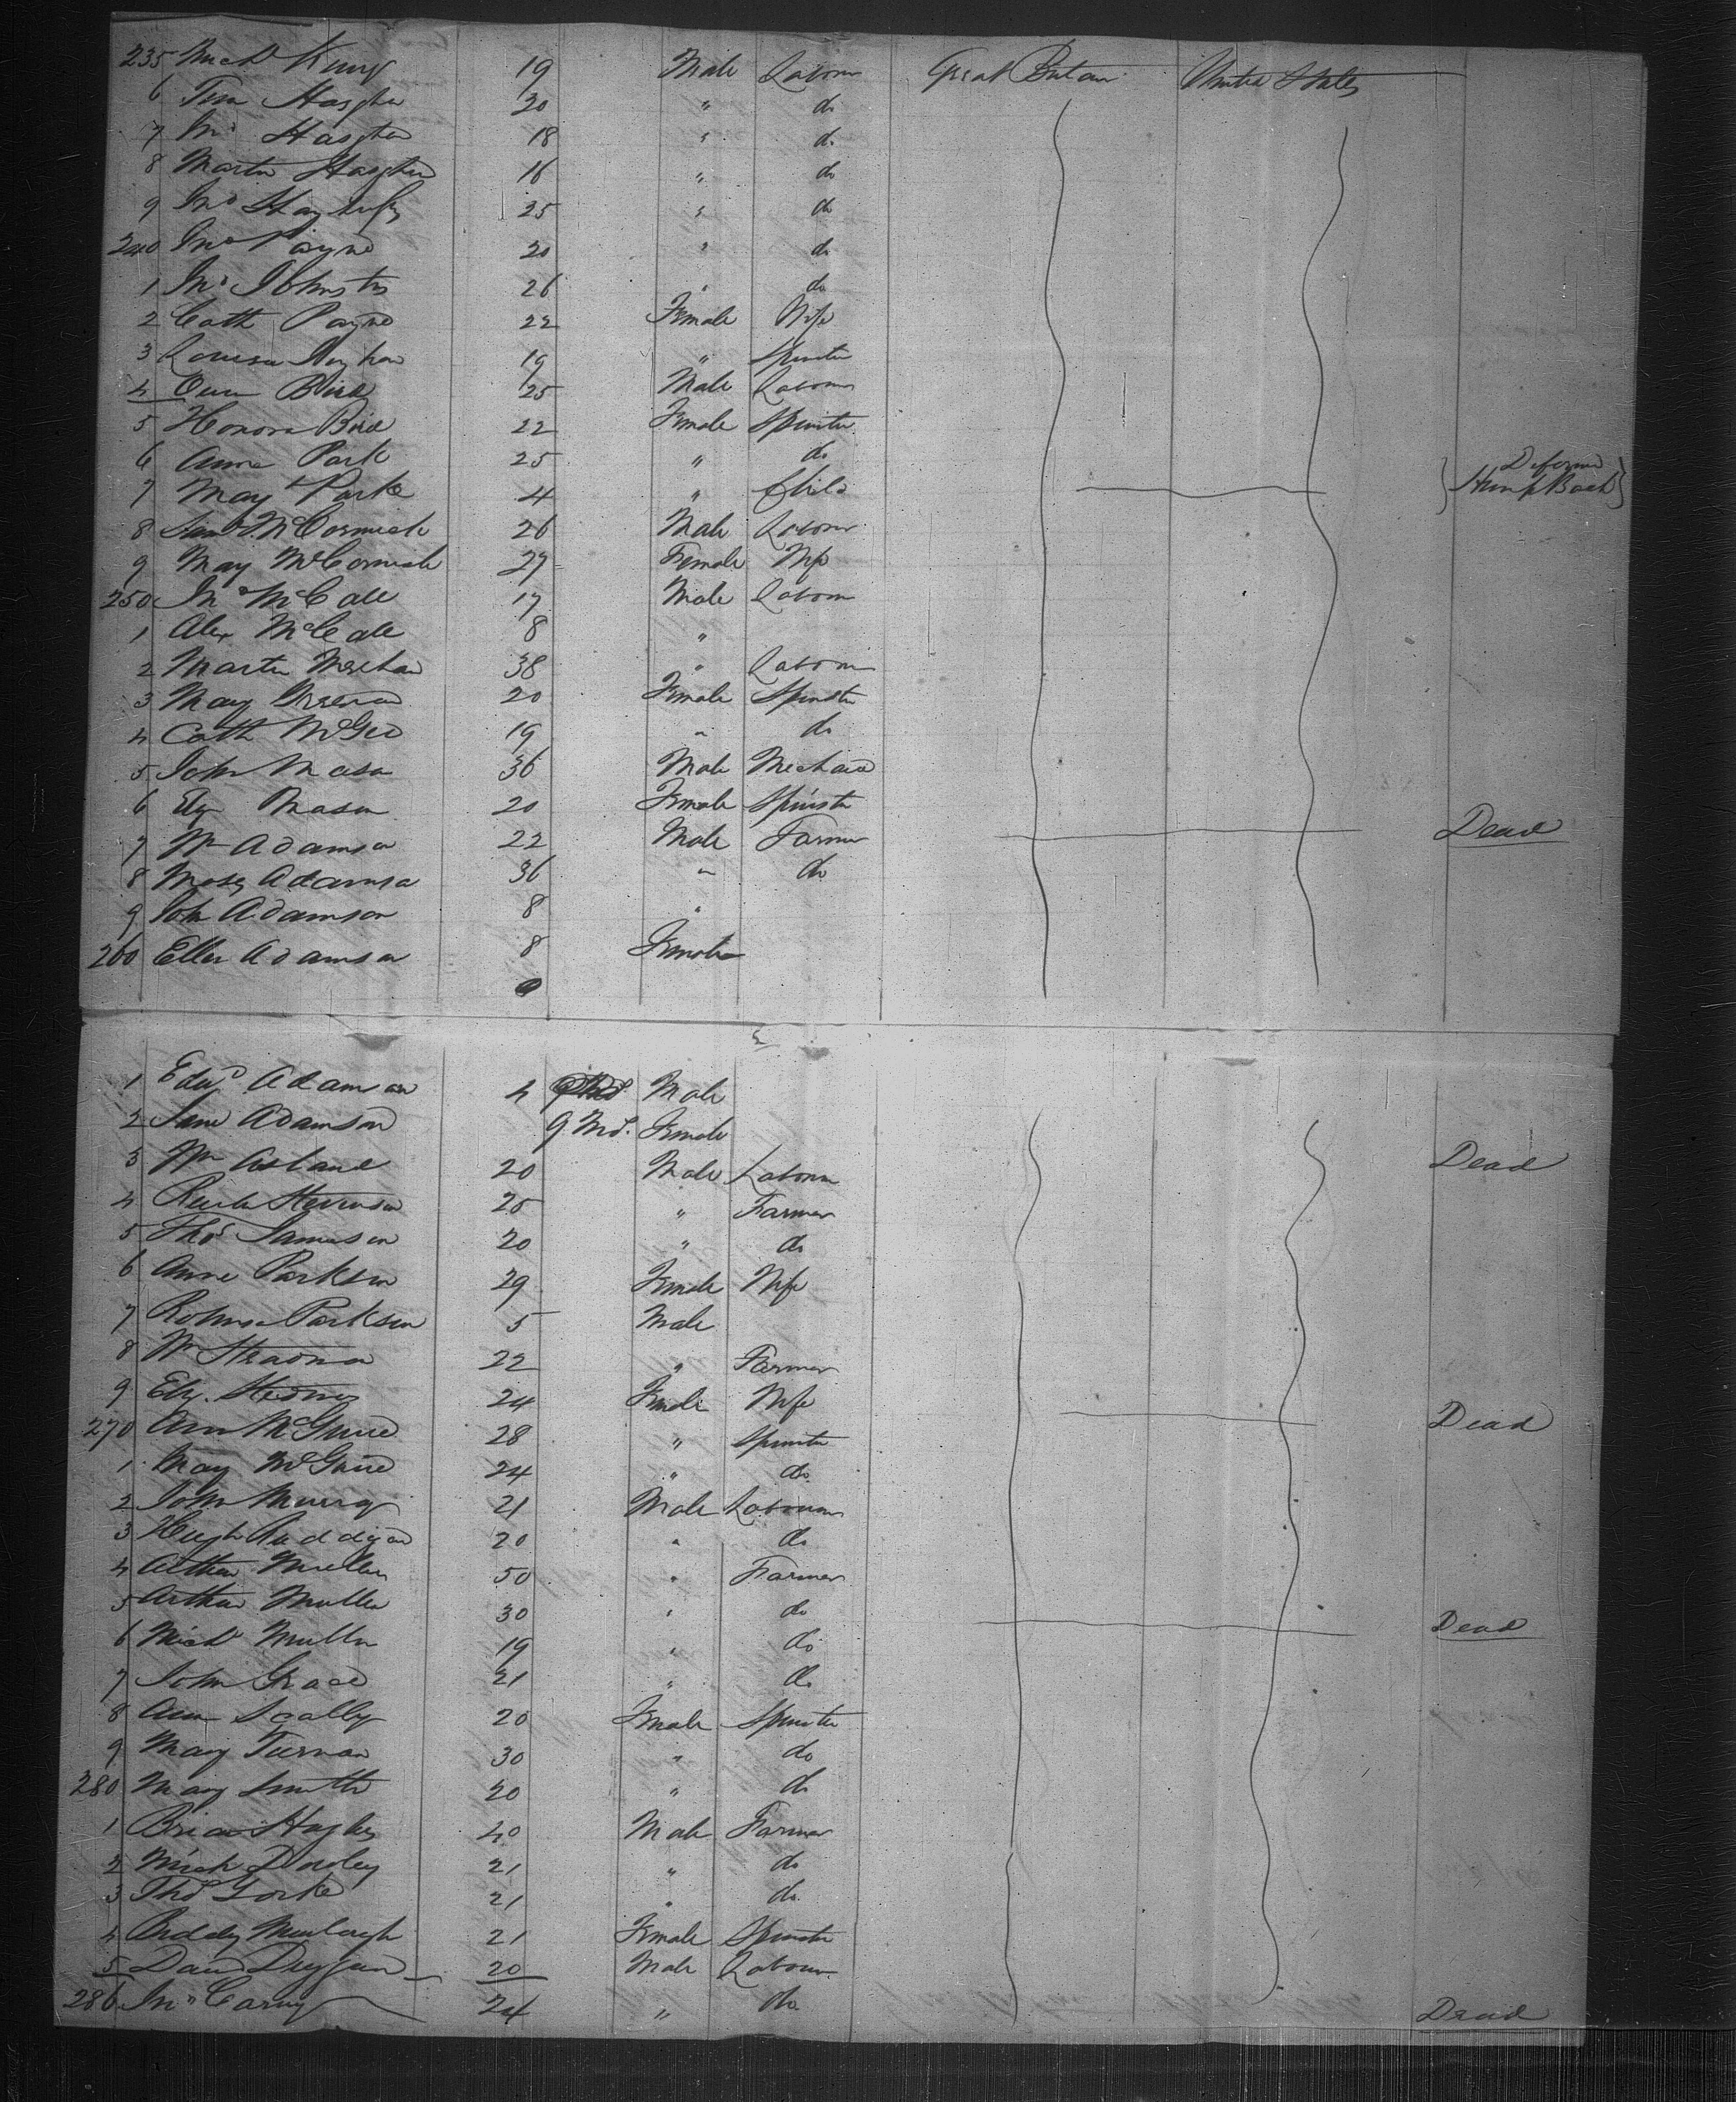 235 Mich King 19 Male Labour Great Britain United States
6 Tim 20 " do
7 18 " do
8 Martin 16 " do
9 Jno 25 " do
240 Jno Payne 20 " do
1 Jno Johnston 26 " do
2 Cath Payne 22 Female Wife
3 Louisa 19 " Spinster
4 Owen Bird 25 Male Labour
5 Honora Bird 22 Female Spinster
6 Anne Park 25 " do
7 May Park 4 " Child Deformd Hump Back
8 McCormick 26 Male Labour
9 May McCormick 27 Female Wife
250 Jno McCall 17 Male Labour
1 Alex McCall 8 "
2 Martin Meehan 38 " Labour
3 May 20 Female Spinster
4 Cath McGee 19 " do
5 John Mason 36 Male Mechanic
6 Elz Mason 20 Female Spinster
7 Wm Adamson 22 Male Farmer Dead
8 Moses Adamson 36 " do
9 John Adamson 8 "
260 Ellen Adamson 8 Female
1 Edwd Adamson 4 Male
2 Jane Adamson 9 Mos. Female
3 Wm 20 Male Labour Dead
4 25 " Farmer
5 Thos Jameson 20 " do
6 Anne Parkson 29 Female Wife
7 Parkson 5 Male
8 Wm 22 " Farmer
9 Elz. 24 Female Wife
270 Ann McGuire 28 " Spinster Dead
1 May McGuire 24 " do
2 John Murray 21 Male Labourer
3 Hugh Ruddigan 20 " do
4 Arthur Mullen 50 " Farmer
5 Arthur Mullen 30 " do
6 Mich Mullen 19 " do Dead
7 John Grace 21 " do
8 Ann Scally 20 Female Spinster
9 Mary Turnan 30 " do
280 Mary Smith 20 " do
1 Brian Hughes 40 Male Farmer
2 Mich Dooley 21 " do
3 Thos 21 " do
4 Biddy Murtaugh 21 Female Spinster
5 20 Male Labour
286 Jno Carney 24 " do Dead